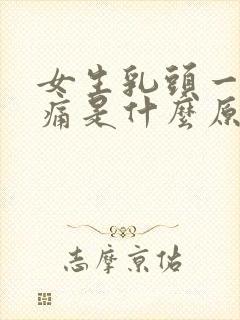 女生乳頭一
痛是什麼原
志摩京佑